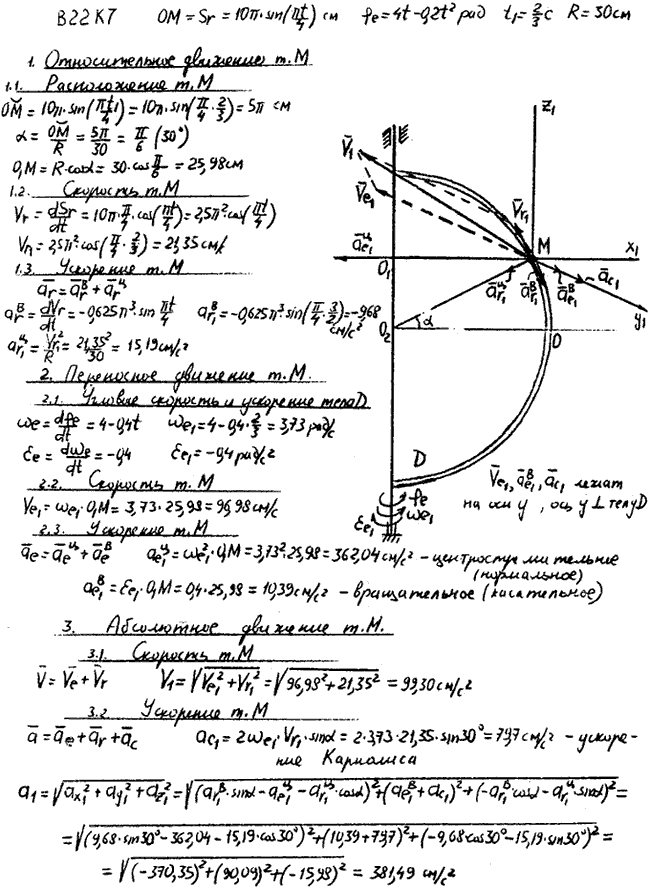 В22 К7 OM = Sr = 10π·sin(πt/4) см φe = 4t − 0,2t² рад t₁ = 2/3 с R = 30 см
1. Относительное движение т. М
1.1. Расположение т. М
OM = 10π·sin(πt₁/4) = 10π·sin(π/4·2/3) = 5π см
α = OM/R = 5π/30 = π/6 (30°)
O₁M = R·cosα = 30·cos π/6 = 25,98 см
1.2. Скорость т. М
Vr = dSr/dt = 10π·π/4·cos(πt/4) = 2,5π²cos(πt/4)
Vr₁ = 2,5π²·cos(π/4·2/3) = 21,35 см/с
1.3. Ускорение т. М
ār = ārᴮ + ārᶣ
arᴮ = dVr/dt = −0,625π³·sin πt/4 ar₁ᴮ = −0,625π³·sin(π/4·3/2) = −9,68 см/с²
ar₁ᶣ = Vr₁²/R = 21,35²/30 = 15,19 см/с²
2. Переносное движение т. М.
2.1. Угловые скорость и ускорение тела D
ωe = dφe/dt = 4 − 0,4t ωe₁ = 4 − 0,4·2/3 = 3,73 рад/с
εe = dωe/dt = −0,4 εe₁ = −0,4 рад/с²
2.2. Скорость т. М
Ve₁ = ωe₁·O₁M = 3,73·25,98 = 96,98 см/с
2.3. Ускорение т. М
āe = āeᶣ + āeᴮ ae₁ᶣ = ωe₁²·O₁M = 3,73²·25,98 = 362,04 см/с² – центростремительное
(нормальное)
ae₁ᴮ = εe₁·O₁M = 0,4·25,98 = 10,39 см/с² – вращательное (касательное)
z₁
V̄₁
V̄e₁
V̄r₁
M
x₁
āe₁ᶣ
O₁
ār₁ᶣ
ār₁ᴮ
āe₁ᴮ
āc₁
y₁
α
O₂
O
D
φe
ωe₁
εe₁
V̄e₁, āe₁ᴮ, āc₁ лежат
на оси y, ось y ⊥ телу D
3. Абсолютное движение т. М.
3.1. Скорость т. М
V̄ = V̄e + V̄r V₁ = √(Ve₁² + Vr₁²) = √(96,98² + 21,35²) = 99,30 см/с²
3.2. Ускорение т. М
ā = āe + ār + āc ac₁ = 2ωe₁·Vr₁·sinα = 2·3,73·21,35·sin30° = 79,7 см/с² – ускоре-
ние Кариолиса
a₁ = √(ax₁² + ay₁² + az₁²) = √((ar₁ᴮ·sinα − ae₁ᶣ − ar₁ᶣ·cosα)² + (ae₁ᴮ + ac₁)² + (−ar₁ᴮ·cosα − ar₁ᶣ·sinα)²) =
= √((9,68·sin30° − 362,04 − 15,19·cos30°)² + (10,39 + 79,7)² + (−9,68·cos30° − 15,19·sin30°)²) =
= √((−370,35)² + (90,09)² + (−15,98)²) = 381,49 см/с²